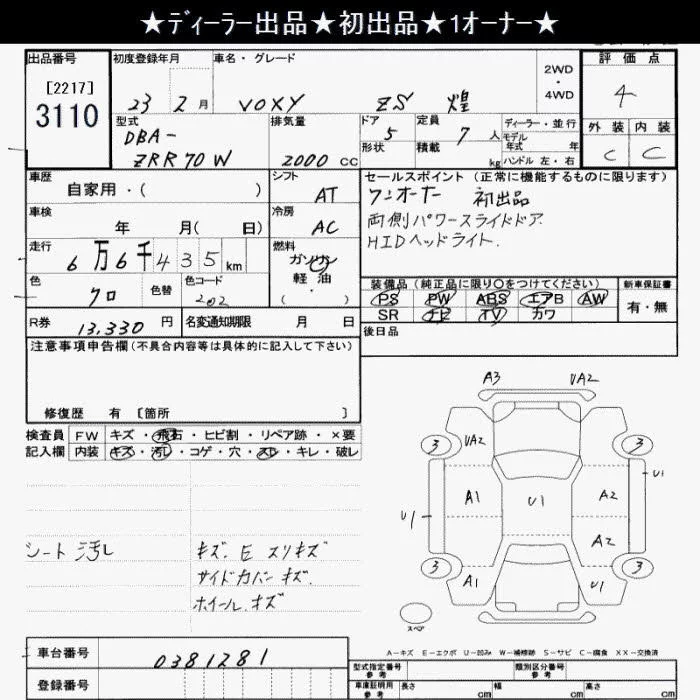 ★ディーラー出品★初出品★1オーナー★
出品番号 初度登録年月 車名・グレード 2WD・4WD 評価点
[2217]
3110 23 2月 VOXY ZS 煌 4
型式 排気量 ドア 定員 ディーラー・並行 外装 内装
DBA- 5 7人 モデル年式 年 C C
ZRR70W 2000cc 形状 積載 kg ハンドル 左・右
車歴 シフト セールスポイント (正常に機能するものに限ります)
自家用・( ) AT ワンオーナー 初出品
車検 冷房 両側パワースライドドア
年 月( 日) AC HIDヘッドライト.
走行 燃料
6万6千435km ガソリン
軽油
( ・ )
色 色替 色コード 装備品 (純正品に限り○をつけてください) 新車保証書
クロ 202 PS PW ABS エアB AW 有・無
R券 13,330円 名変通知期限 月 日 SR ナビ TV カワ
注意事項申告欄(不具合内容等は具体的に記入して下さい) 後日品
修復歴 有 〔箇所 〕
検査員 FW キズ・飛石・ヒビ割・リペア跡・×要
記入欄 内装 キズ・汚レ・コゲ・穴・スレ・キレ・破レ
A3 VA2
3 VA2 3
A1 U1 A2 U1
U1 A2
3 A1 U1 3
スペア
シート 汚レ キズ. E スリキズ
サイドカバー キズ.
ホイール.キズ
A-キズ E-エクボ U-凹み W-補修跡 S-サビ C-腐食 XX-交換済
車台番号 0381281 型式指定番号 参考 類別区分番号 参考
登録番号 車庫証明用 参考 長さ cm 幅 cm 高さ cm